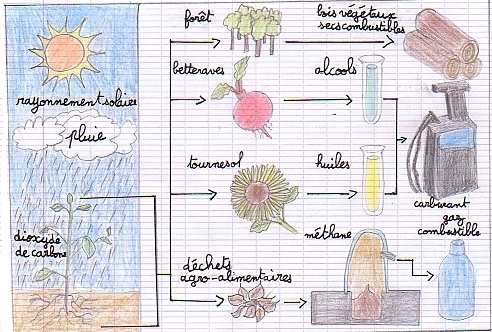 rayonnement solaire
pluie
dioxyde
de carbone
forêt
bois végétaux
secs combustibles
betteraves
alcools
tournesol
huiles
carburant
gaz
combustible
déchets
agro-alimentaires
méthane